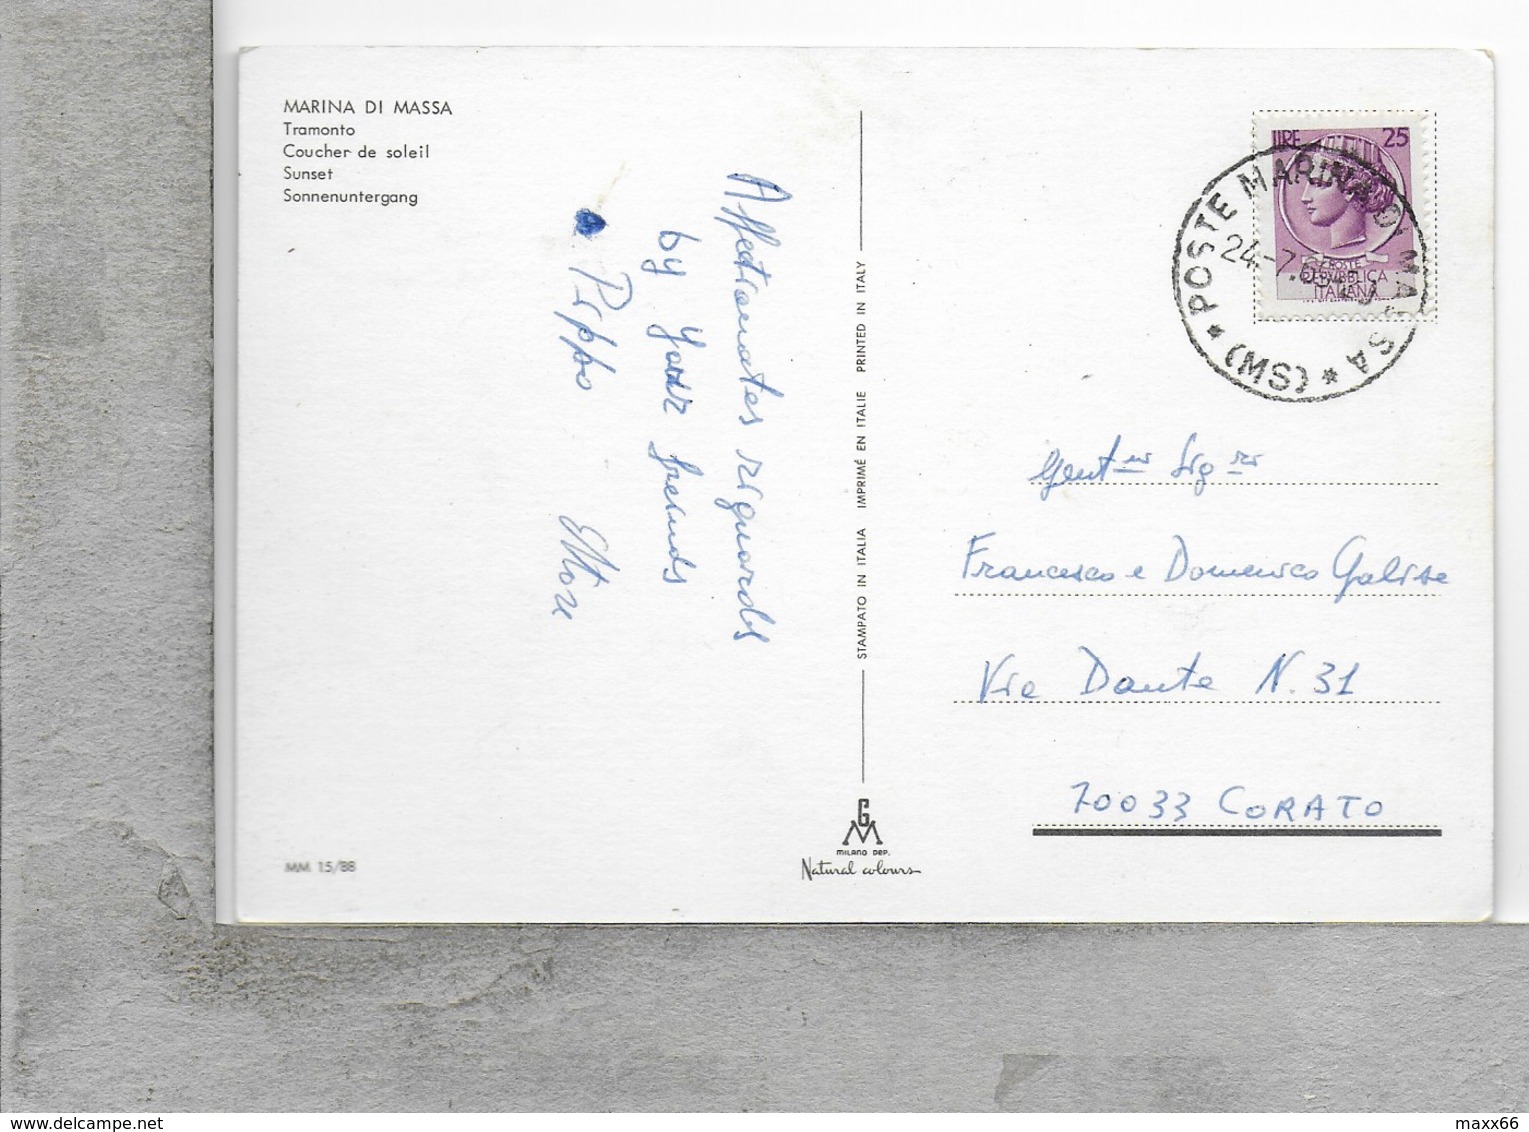 MARINA DI MASSA
Tramonto
Coucher de soleil
Sunset
Sonnenuntergang
Affectionates riguards
by your friends
Pippo Ettore
MM 15/88
STAMPATO IN ITALIA IMPRIMÉ EN ITALIE PRINTED IN ITALY
GM
MILANO DEP.
Natural colours
LIRE 25
POSTE REPVBBLICA ITALIANA
* POSTE MARINA DI MASSA * (MS)
24-7
Gent.mi Sig.ri
Francesco e Domenico
Via Dante N. 31
70033 CORATO
maxx66